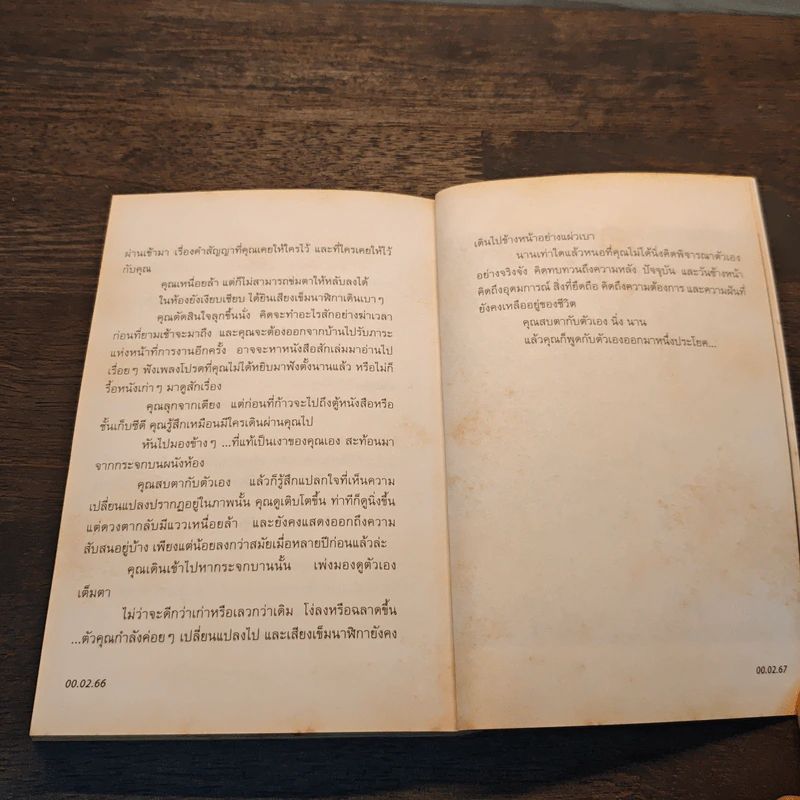 ผ่านเข้ามา เรื่องคำสัญญาที่คุณเคยให้ใครไว้ และที่ใครเคยให้ไว้
กับคุณ
คุณเหนื่อยล้า แต่ก็ไม่สามารถข่มตาให้หลับลงได้
ในห้องยังเงียบเชียบ ได้ยินเสียงเข็มนาฬิกาเดินเบาๆ
คุณตัดสินใจลุกขึ้นนั่ง คิดจะทำอะไรสักอย่างฆ่าเวลา
ก่อนที่ยามเช้าจะมาถึง และคุณจะต้องออกจากบ้านไปรับภาระ
แห่งหน้าที่การงานอีกครั้ง อาจจะหาหนังสือสักเล่มมาอ่านไป
เรื่อยๆ ฟังเพลงโปรดที่คุณไม่ได้หยิบมาฟังตั้งนานแล้ว หรือไม่ก็
รื้อหนังเก่าๆ มาดูสักเรื่อง
คุณลุกจากเตียง แต่ก่อนที่ก้าวจะไปถึงตู้หนังสือหรือ
ชั้นเก็บซีดี คุณรู้สึกเหมือนมีใครเดินผ่านคุณไป
หันไปมองข้างๆ ...ที่แท้เป็นเงาของคุณเอง สะท้อนมา
จากกระจกบนผนังห้อง
คุณสบตากับตัวเอง แล้วก็รู้สึกแปลกใจที่เห็นความ
เปลี่ยนแปลงปรากฏอยู่ในภาพนั้น คุณดูเติบโตขึ้น ท่าทีก็ดูนิ่งขึ้น
แต่ดวงตากลับมีแววเหนื่อยล้า และยังคงแสดงออกถึงความ
สับสนอยู่บ้าง เพียงแต่น้อยลงกว่าสมัยเมื่อหลายปีก่อนแล้วล่ะ
คุณเดินเข้าไปหากระจกบานนั้น เพ่งมองดูตัวเอง
เต็มตา
ไม่ว่าจะดีกว่าเก่าหรือเลวกว่าเดิม โง่ลงหรือฉลาดขึ้น
...ตัวคุณกำลังค่อยๆ เปลี่ยนแปลงไป และเสียงเข็มนาฬิกายังคง
00.02.66
เดินไปข้างหน้าอย่างแผ่วเบา
นานเท่าใดแล้วหนอที่คุณไม่ได้นิ่งคิดพิจารณาตัวเอง
อย่างจริงจัง คิดทบทวนถึงความหลัง ปัจจุบัน และวันข้างหน้า
คิดถึงอุดมการณ์ สิ่งที่ยึดถือ คิดถึงความต้องการ และความฝันที่
ยังคงเหลืออยู่ของชีวิต
คุณสบตากับตัวเอง นิ่ง นาน
แล้วคุณก็พูดกับตัวเองออกมาหนึ่งประโยค...
00.02.67